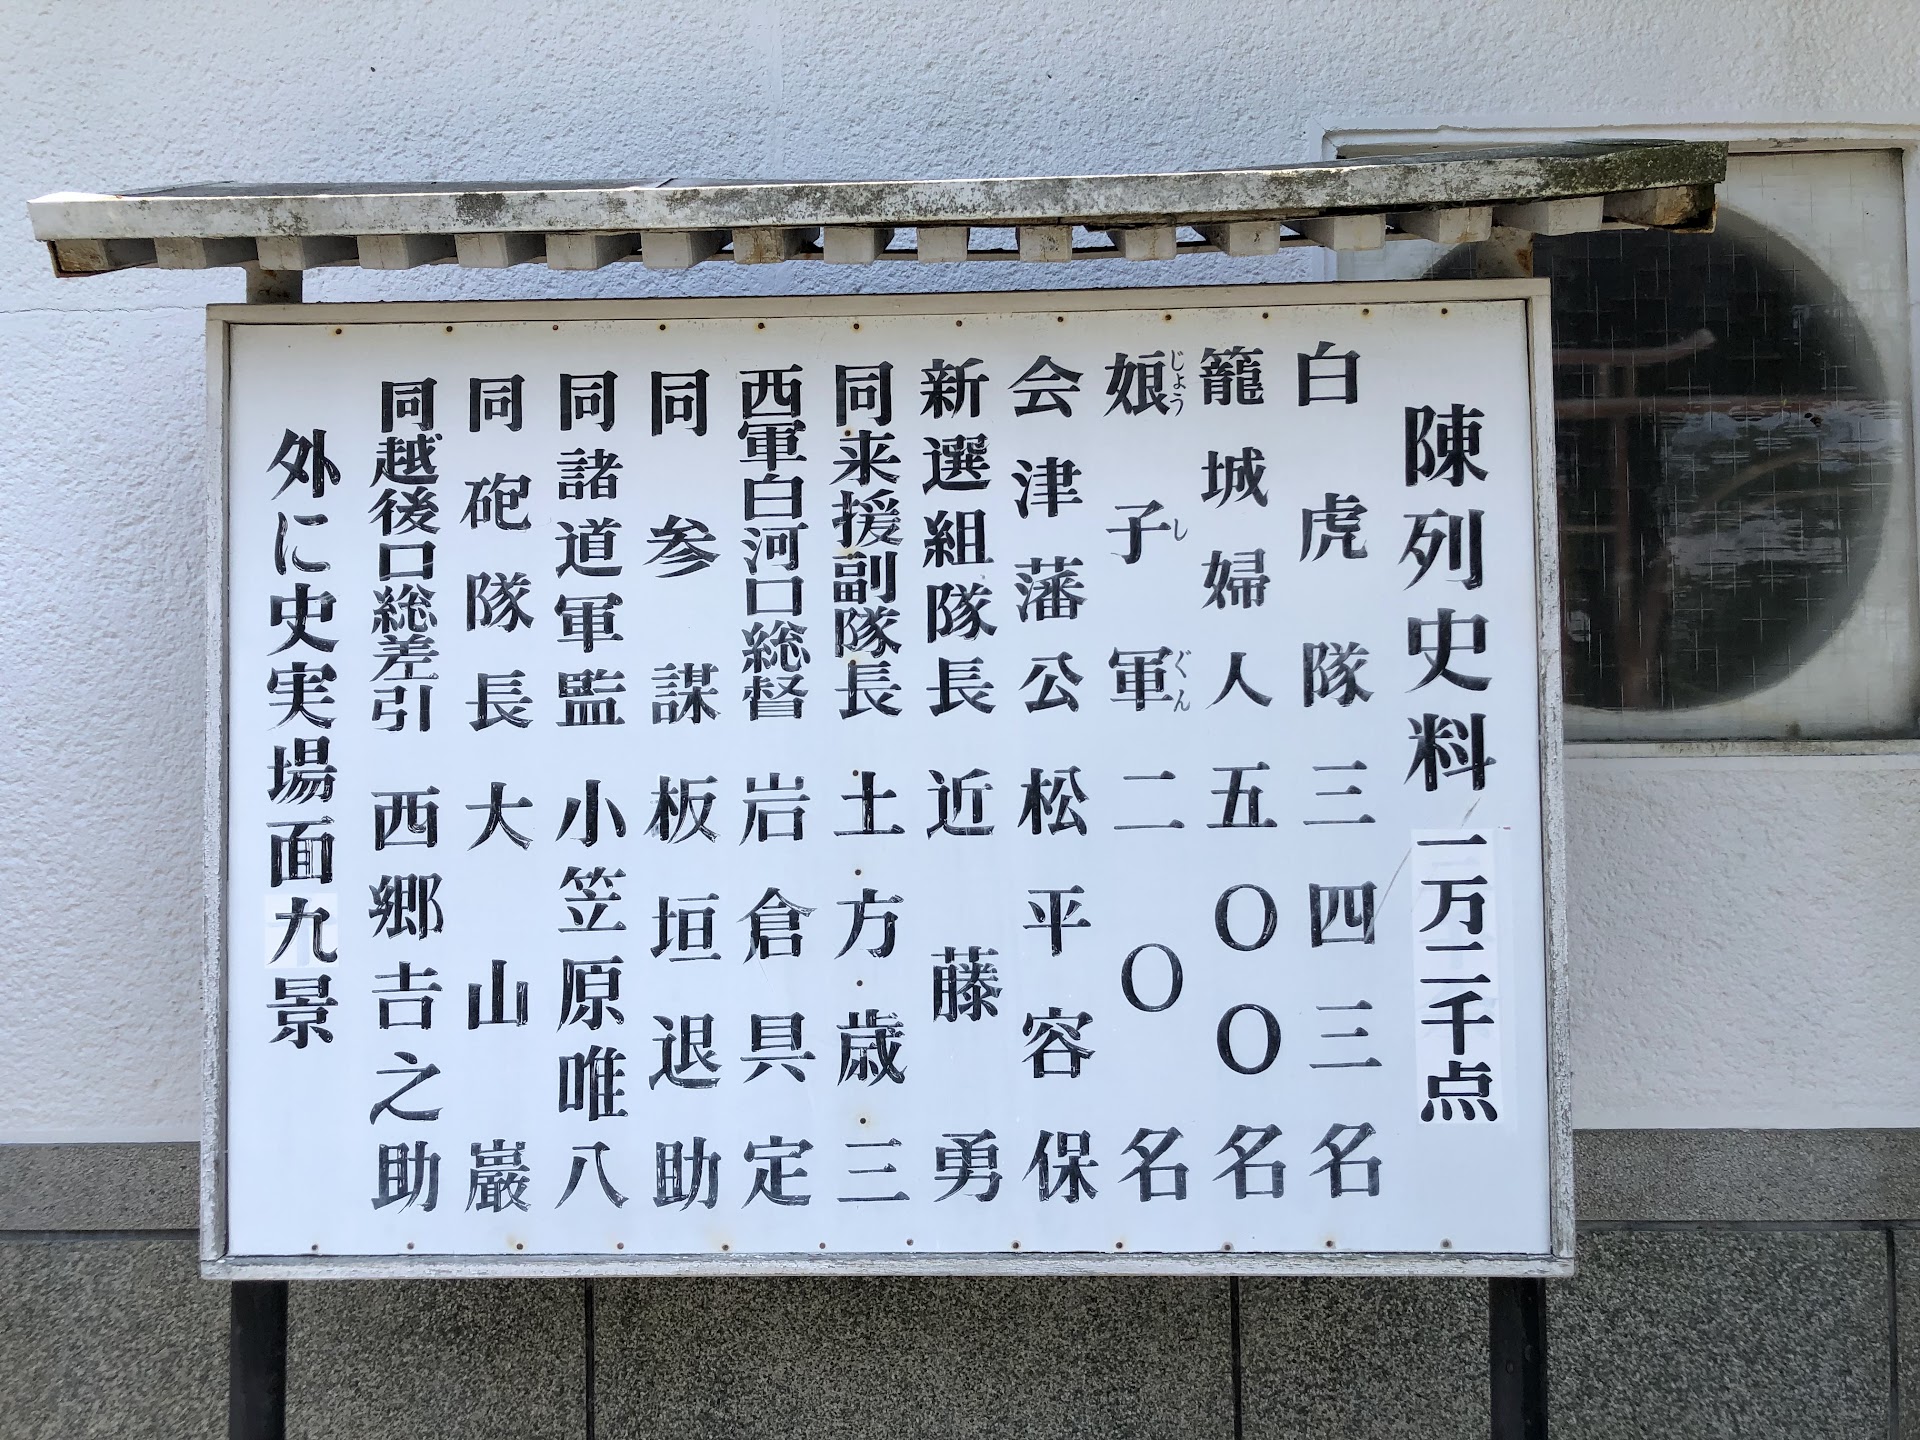 陳列史料 一万二千点
白虎隊三四三名
籠城婦人五〇〇名
娘子軍二〇名
じょうしぐん
会津藩公松平容保
新選組隊長近藤勇
同来援副隊長土方歳三
西軍白河口総督岩倉具定
同参謀板垣退助
同諸道軍監小笠原唯八
同砲隊長大山巌
同越後口総差引西郷吉之助
外に史実場面九景